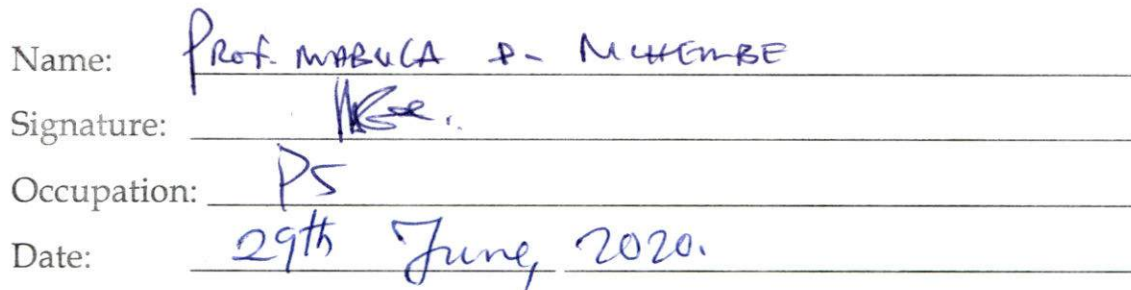 Name: Prof. MABULA D. MCHEMBE
Signature:
Occupation: PS
Date: 29th June, 2020.